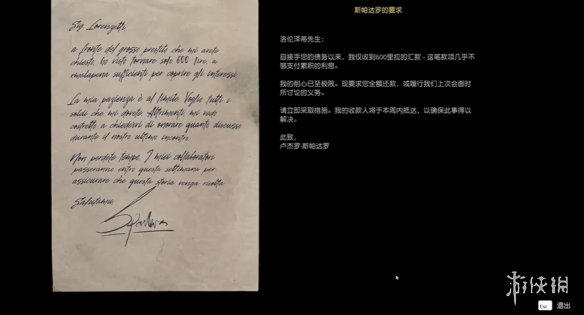 Sig. Lorenzetti,
a fronte del grosso prestito che mi avete
chiesto, ho visto tornare solo 600 lire, a
malapena sufficienti per coprire gli interessi.
La mia pazienza è al limite. Voglio tutti i
soldi che mi dovete. Altrimenti, mi vedo
costretto a chiedervi di onorare quanto discusso
durante il nostro ultimo incontro.
Non perdete tempo. I miei collaboratori
passeranno entro questa settimana per
assicurare che questa storia venga risolta.
Salutiamo,
斯帕达罗的要求
洛伦泽蒂先生：
自接手您的债务以来，我仅收到600里拉的汇款，这笔款项几乎不
够支付累积的利息。
我的耐心已至极限。现要求您全额还款，或履行我们上次会面时
所讨论的义务。
请立即采取措施。我的收款人将于本周内抵达，以确保此事得以
解决。
此致，
卢杰罗·斯帕达罗
游侠网
Esc 退出